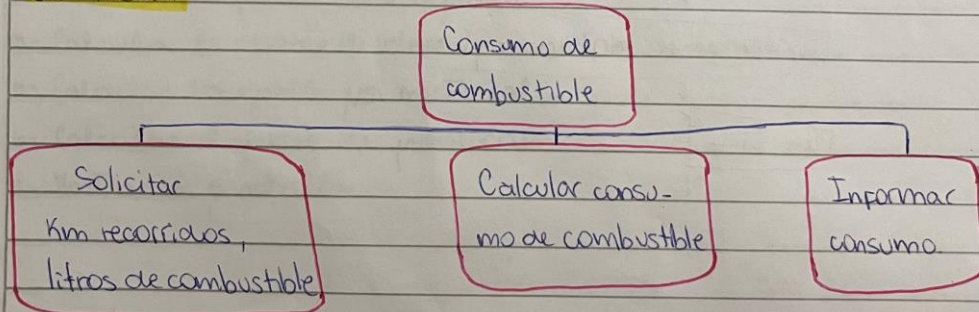 Consumo de
combustible
Solicitar
Km recorridos,
litros de combustible
Calcular consu-
mo de combustible
Informar
consumo.